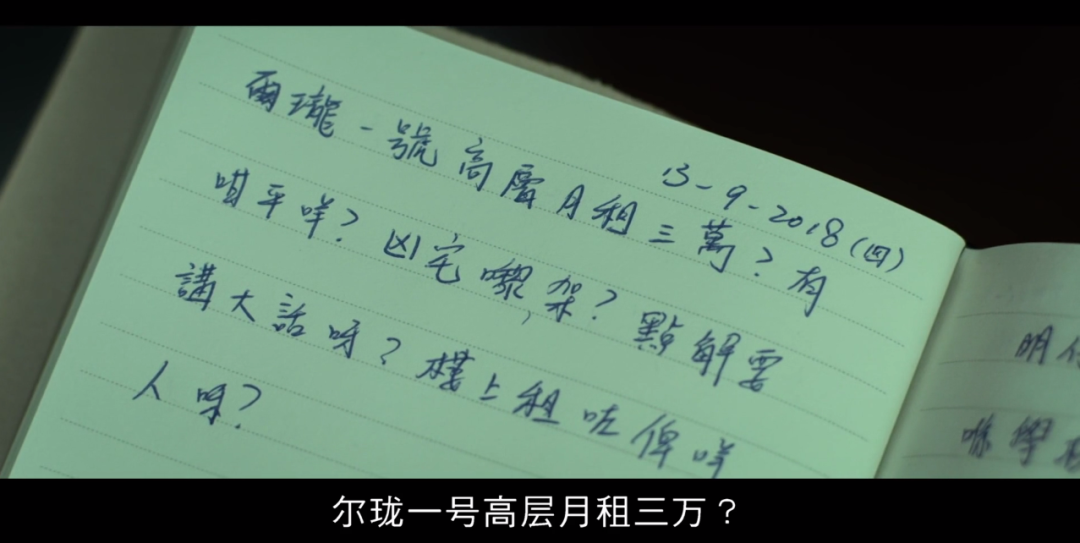 13-9-2018(四)
爾瓏一號高層月租三萬？有
咁平咩？凶宅嚟架？點解要
講大話呀？樓上租咗俾咩
人呀？
明
喺學
尔珑一号高层月租三万？